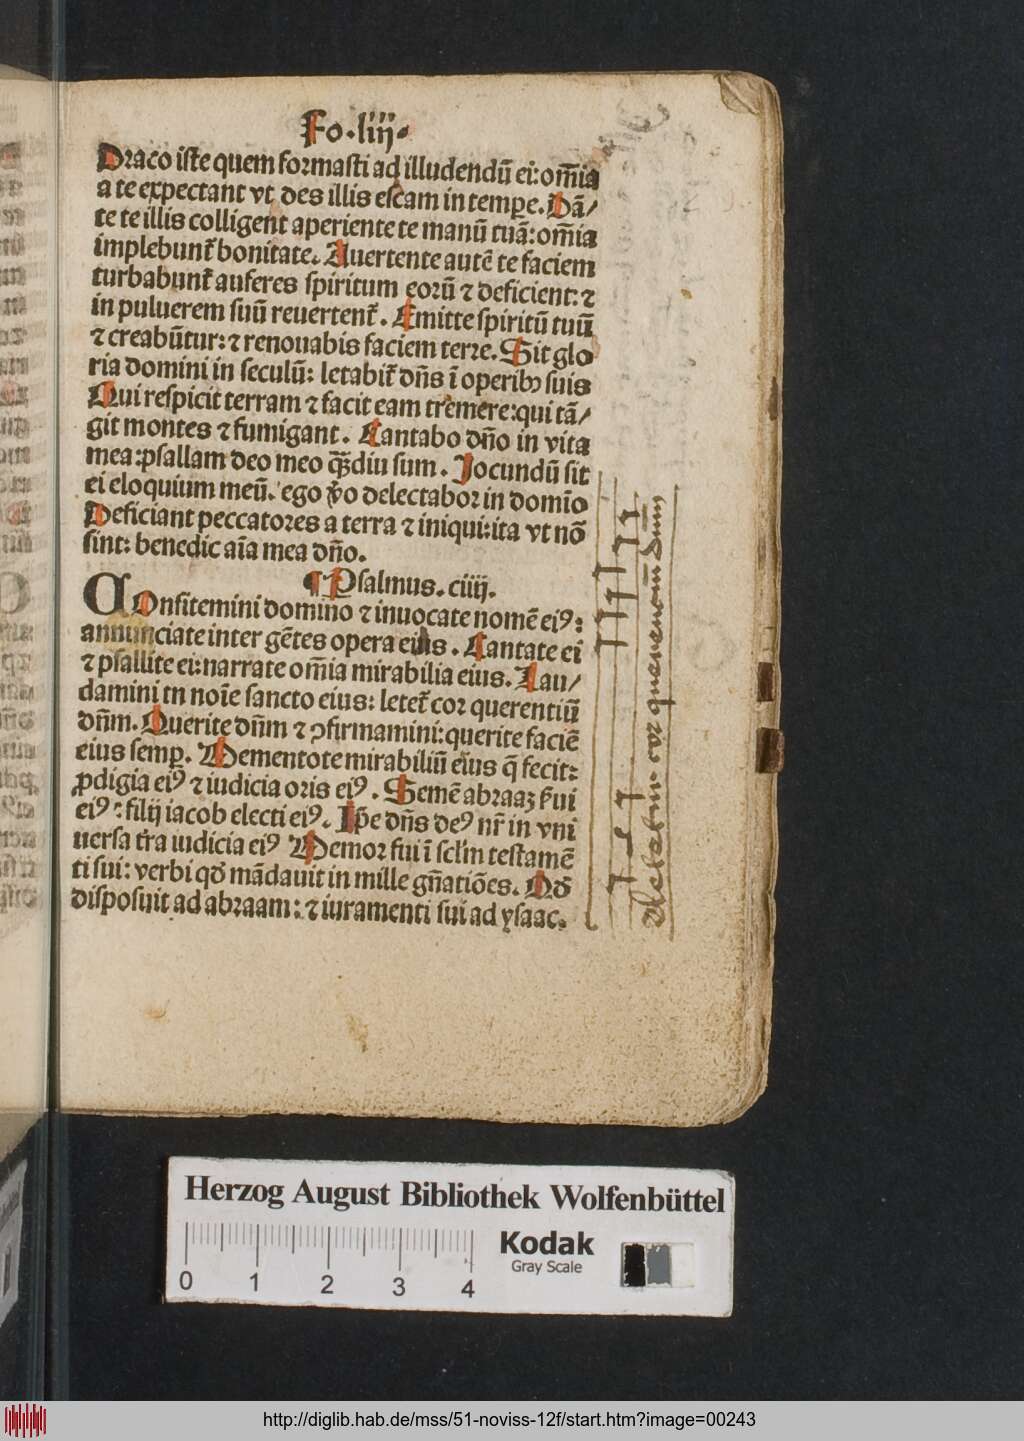 Fo·liij·
Draco iste quem formasti ad illudendū ei:om̄ia
a te expectant vt des illis escam in temꝑe. Dā/
te te illis colligent aperiente te manū tuā:om̄ia
implebunt᷑ bonitate. Auertente autē te faciem
turbabunt᷑ auferes spiritum eoꝛū ⁊ deficient:⁊
in puluerem suū reuertent᷑. Emitte spiritū tuū
⁊ creabūtur:⁊ renouabis faciem terre. Sit glo
ria domini in seculū: letabit᷑ dn̄s ī operibꝰ suis
Qui respicit terram ⁊ facit eam tremere:qui tā/
git montes ⁊ fumigant. Cantabo dn̄o in vita
mea:psallam deo meo qȝ̄diu sum. Jocundū sit
ei eloquium meū. ego v̊o delectaboꝛ in domīo
Deficiant peccatoꝛes a terra ⁊ iniqui:ita vt nō
sint: benedic aīa mea dn̄o.
¶ Psalmus. ciiij.
COnfitemini domino ⁊ inuocate nomē eiꝰ:
annunciate inter gētes opera eius. Cantate ei
⁊ psallite ei:narrate om̄ia mirabilia eius. Lau/
damini in noīe sancto eius: letet᷑ coꝛ querentiū
dn̄m. Querite dn̄m ⁊ ꝯfirmamini:querite faciē
eius semꝑ. Mementote mirabiliū eius q̄ fecit:
ꝓdigia eiꝰ ⁊ iudicia oꝛis eiꝰ. Semē abꝛaaȝ s̓ui
eiꝰ: filij iacob electi eiꝰ. Ip̄e dn̄s deꝰ nr̄ in vni
uersa t̓ra iudicia eiꝰ Memoꝛ fui ī scl̓m testamē
ti sui: verbi qđ mādauit in mille gn̄atiōes. Qđ
disposuit ad abꝛaam:⁊ iuramenti sui ad ysaac.
letetur cor querencium dnm
Herzog August Bibliothek Wolfenbüttel
Kodak
Gray Scale
0 1 2 3 4
http://diglib.hab.de/mss/51-noviss-12f/start.htm?image=00243